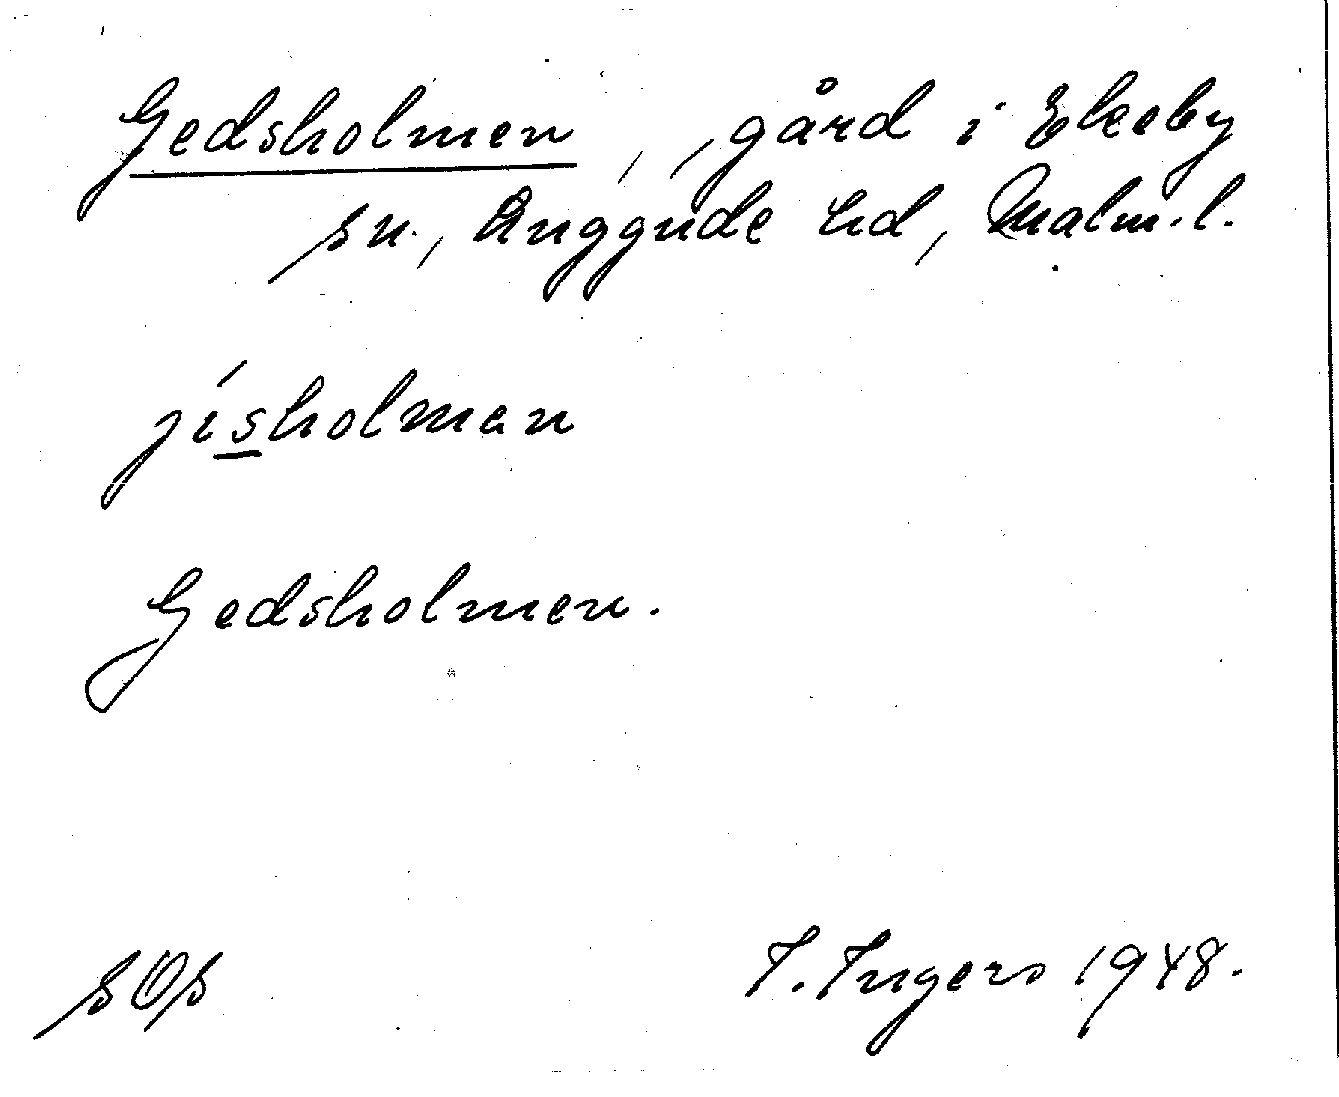 Gedsholmen, gård i Ekeby
sn., Luggude hd, Malm. l.
jísholmən
Gedsholmen.
SOS
I. Ingers 1948.